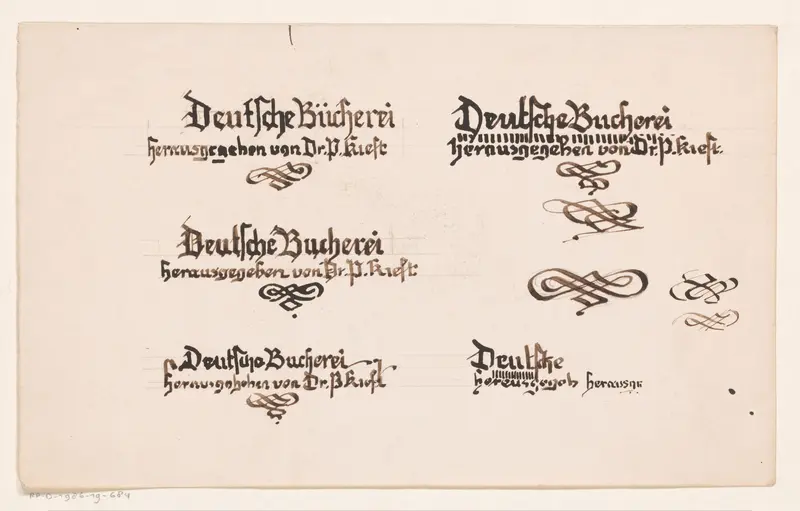 Deutsche Bücherei
herausgegeben von Dr. P. Kieft
Deutsche Bucherei
herausgegeben von Dr. P. Kieft.
Deutsche Bucherei
herausgegeben von Dr. P. Kieft
Deutsche Bucherei
herausgegehen von Dr. P. Kieft.
Deutsche
herausgegeb herausge
RP-D-1986-19-684